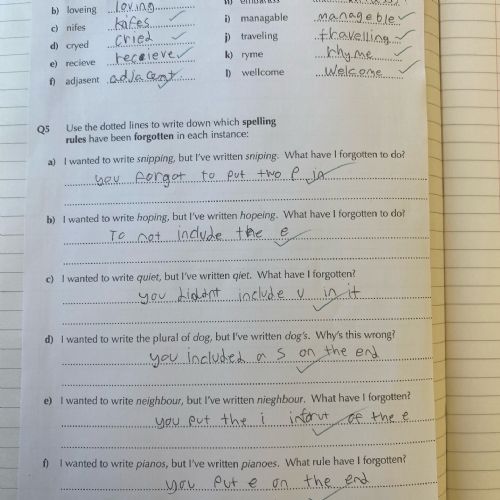 b) loveing loving
c) nifes knifes
d) cryed cried
e) recieve receieve
f) adjasent adjacent
h) embarass
i) managable manageble
j) traveling travelling
k) ryme rhyme
l) wellcome Welcome
Q5 Use the dotted lines to write down which spelling
rules have been forgotten in each instance:
a) I wanted to write snipping, but I've written sniping. What have I forgotten to do?
you forgot to put two P in
b) I wanted to write hoping, but I've written hopeing. What have I forgotten to do?
To not include the e
c) I wanted to write quiet, but I've written qiet. What have I forgotten?
you didant include u in it
d) I wanted to write the plural of dog, but I've written dog's. Why's this wrong?
you included a s on the end
e) I wanted to write neighbour, but I've written nieghbour. What have I forgotten?
you put the i inforut of the e
f) I wanted to write pianos, but I've written pianoes. What rule have I forgotten?
you put e on the end